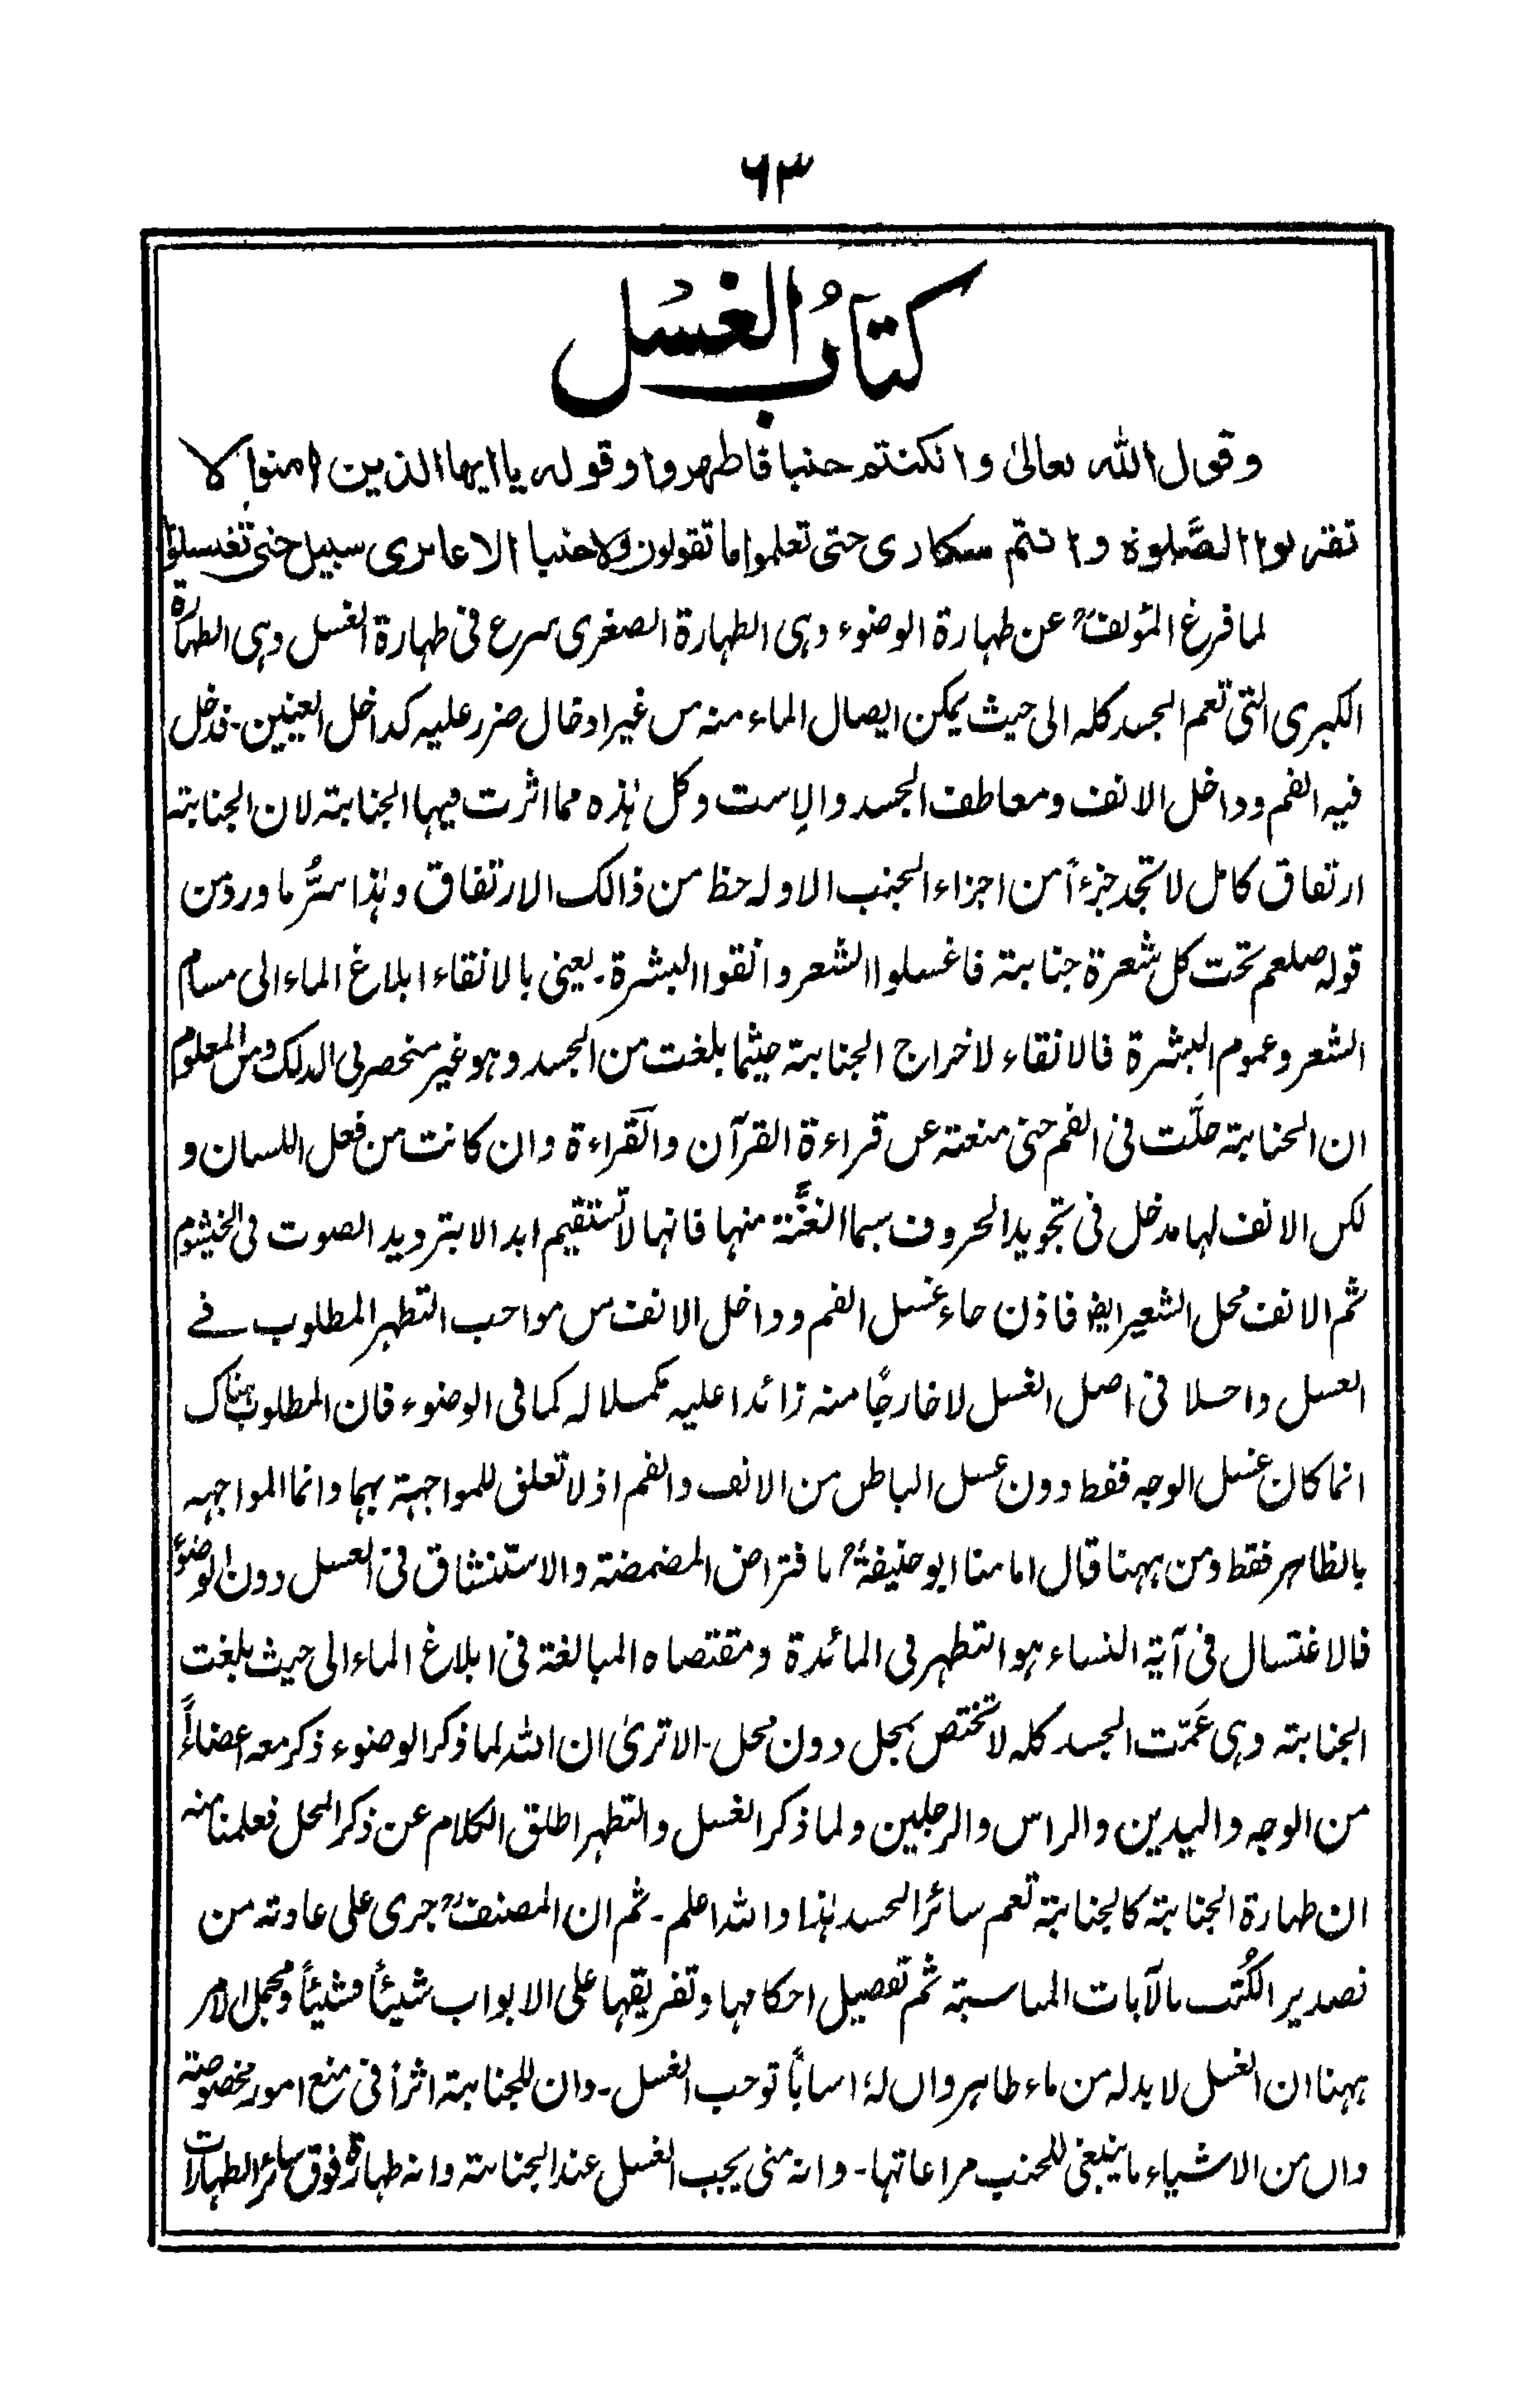 ٦٣
كتابُ الغسل
وقول الله تعالىٰ وان كنتم جنبا فاطهروا وقوله يا ايها الذين امنوا لا
تقربوا الصَّلوة وانتم سكارى حتى تعلموا ما تقولون ولا جنبا الا عابرى سبيل حتى تغسلوا
لما فرغ المؤلفؒ عن طهارة الوضوء وهى الطهارة الصغرى شرع فى طهارة الغسل وهى الطهارة
الكبرى التى تعم الجسد كله الى حيث يمكن ايصال الماء منه من غير ادخال ضرر عليه كداخل العينين ـ فدخل
فيه الفم وداخل الانف ومعاطف الجسد والإست وكل هٰذه مما اثرت فيها الجنابة لان الجنابة
ارتفاق كامل لا تجد جزءاً من اجزاء الجنب الا وله حظ من ذالك الارتفاق وهٰذا سرُّ ما ورد من
قوله صلعم تحت كل شعرة جنابة فاغسلوا الشعر وانقوا البشرة ـ يعنى بالانقاء ابلاغ الماء الى مسام
الشعر وعموم البشرة فالانقاء لاخراج الجنابة حيثما بلغت من الجسد وهو غير منحصر فى الدلك ومن المعلوم
ان الجنابة حلَّت فى الفم حتى منعته عن قراءة القرآن والقراءة وان كانت من فعل اللسان و
لكن الانف لها مدخل فى تجويد الحروف سيما الغنَّة منها فانها لا تستقيم ابدا الا بترديد الصوت فى الخيشوم
ثم الانف محل الشعير ايضا فاذن جاء غسل الفم وداخل الانف من مواجب التطهر المطلوب فے
الغسل داخلا فى اصل الغسل لا خارجًا منه زائدا عليه مكملا له كما فى الوضوء فان المطلوب هناك
انما كان غسل الوجه فقط دون غسل الباطن من الانف والفم اذ لا تعلق للمواجهة بهما وانما المواجهه
بالظاهر فقط ومن ههنا قال امامنا ابو حنيفةؒ بافتراض المضمضة والاستنشاق فى الغسل دون الوضوء
فالاغتسال فى آية النساء هو التطهر فى المائدة ومقتضاه المبالغة فى ابلاغ الماء الى حيث بلغت
الجنابة وهى عَمّت الجسد كله لا تختص بمحل دون محل ـ الا ترىٰ ان الله لما ذكر الوضوء ذكر معه اعضاءً
من الوجه واليدين والراس والرجلين ولما ذكر الغسل والتطهر اطلق الكلام عن ذكر المحل فعلمنا منه
ان طهارة الجنابة كالجنابة تعم سائر الجسد هٰذا والله اعلم ـ ثم ان المصنفؒ جرى على عادته من
تصدير الكُتب بالآيات المناسبة ثم تفصيل احكامها وتفريقها على الابواب شيئاً فشيئاً ومجمل الامر
ههنا ان الغسل لا بد له من ماء طاهر وان لهٗ اسباباً توجب الغسل ـ وان للجنابة اثراً فى منع امور مخصوصة
وان من الاشياء ما ينبغى للجنب مراعاتها ـ وانه متى يجب الغسل عند الجنابة وانه طهارة فوق سائر الطهارات